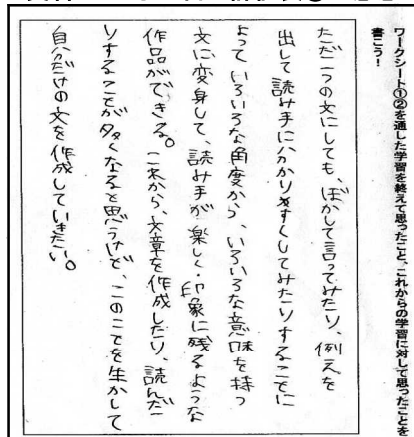 ワークシート①②を通した学習を終えて思ったこと、これからの学習に対して思ったことを
書こう！
ただ一つの文にしても、ぼかして言ってみたり、例えを
出して読み手に分かりやすくしてみたりすることに
よっていろいろな角度から、いろいろな意味を持つ
文に変身して、読み手が楽しく・印象に残るような
作品ができる。これから、文章を作成したり、読んだ
りすることが多くなると思うけど、このことを生かして
自分だけの文を作成していきたい。